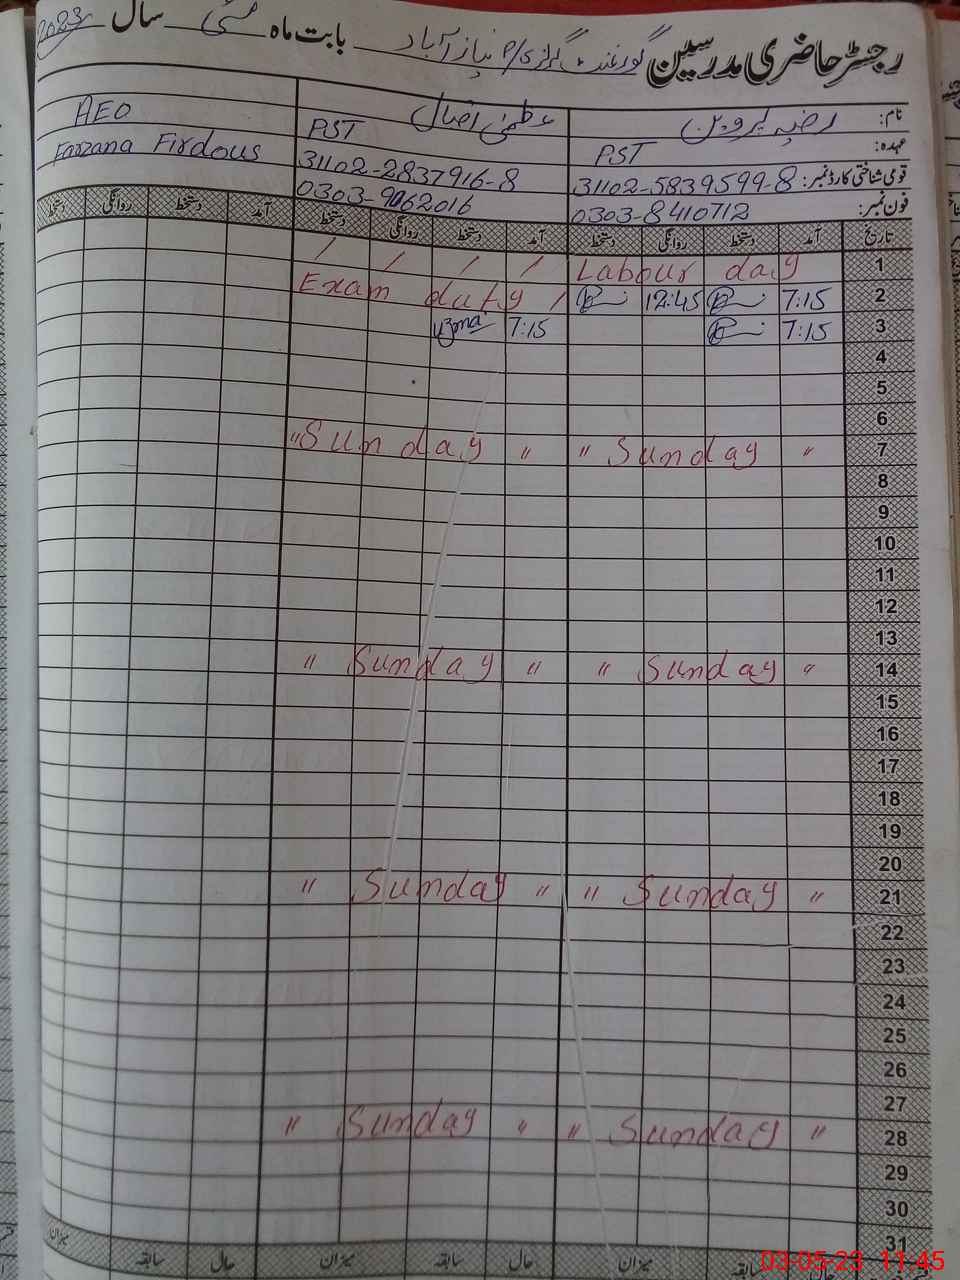 رجسٹر حاضری مدرسین گورنمنٹ گرلز پی/ نیاز آباد بابت ماہ مئی سال 2023
نام: رضیہ پروین عظمیٰ AEO
عہدہ: PST PST Farzana Firdous
قومی شناختی کارڈ نمبر: 31102-5839599-8 31102-2837916-8
فون نمبر: 0303-8410712 0303-9062016
تاریخ آمد دستخط روانگی دستخط آمد دستخط روانگی دستخط آمد دستخط روانگی دستخط
1 Labour day / / / /
2 7:15 12:45 Exam duty /
3 7:15 7:15 Uzma
4
5
6
7 " Sunday " " Sunday "
8
9
10
11
12
13
14 " Sunday " " Sunday "
15
16
17
18
19
20
21 " Sunday " " Sunday "
22
23
24
25
26
27
28 " Sunday " " Sunday "
29
30
31
میزان حال سابقہ میزان حال سابقہ میزان
03-05-23 11:45